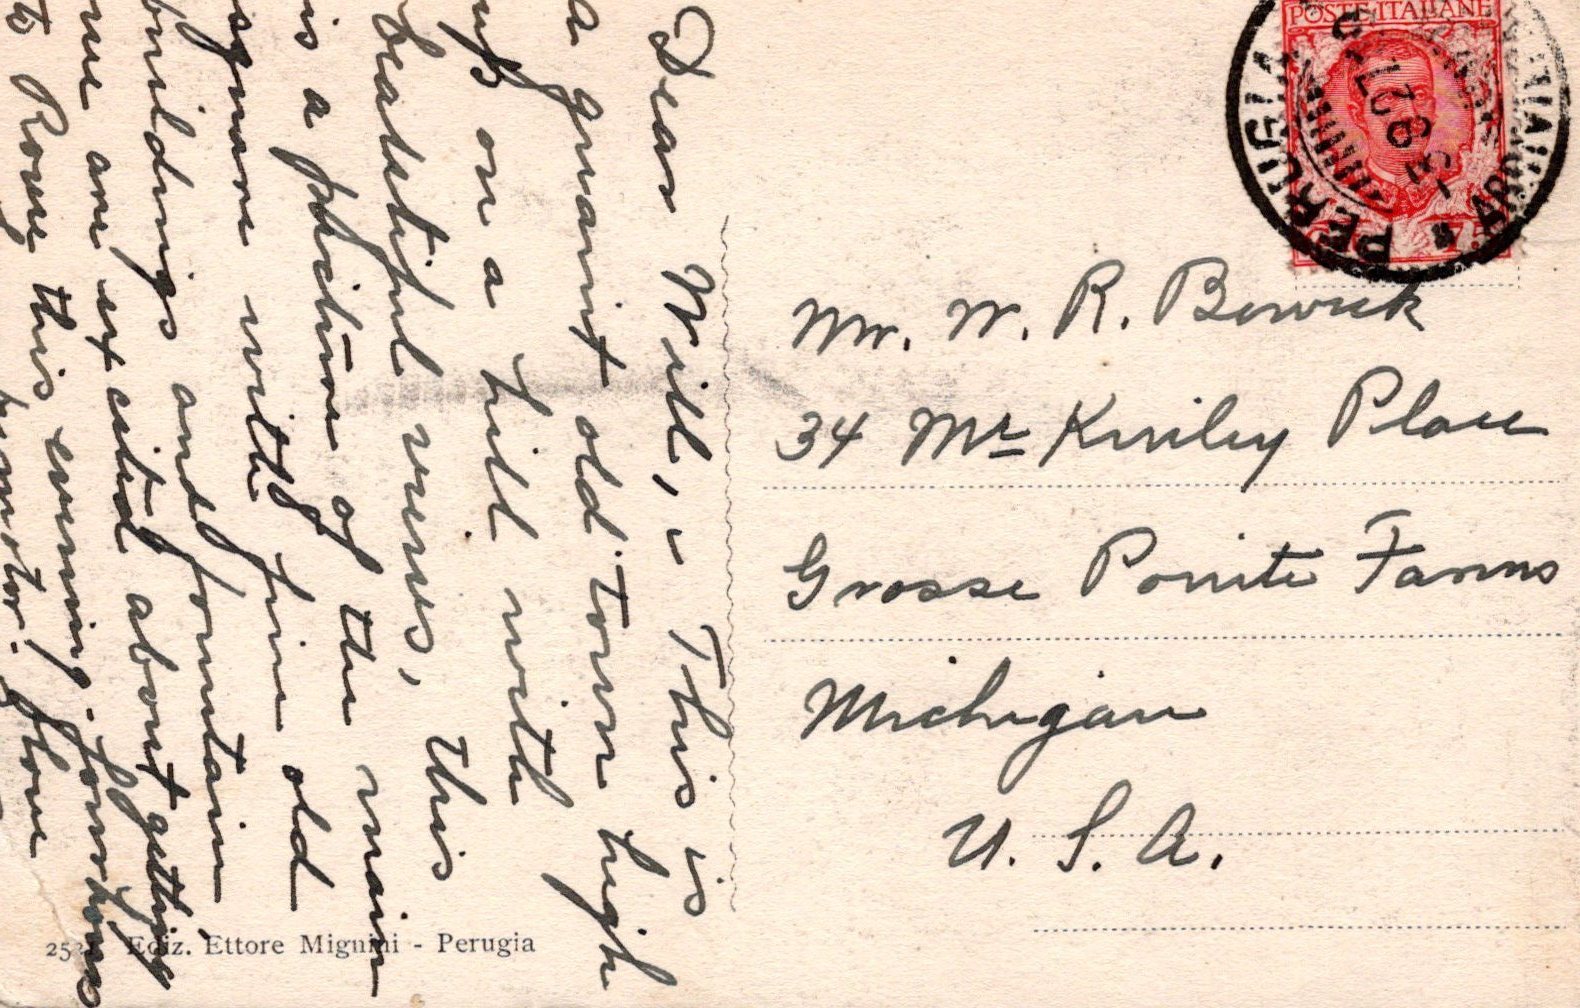 Dear Will, - This is
a quaint old town high
up on a hill with
beautiful views, this
is a picture of the main
square with fine old
buildings and fountain,
me are excited about getting
to Rome this evening. four hours
by motor. Love
Mr. W. R. Bewick
34 McKinley Place
Grosse Pointe Farms
Michigan
U. S. A.
POSTE ITALIANE
PERUGIA
75
Ediz. Ettore Mignini - Perugia